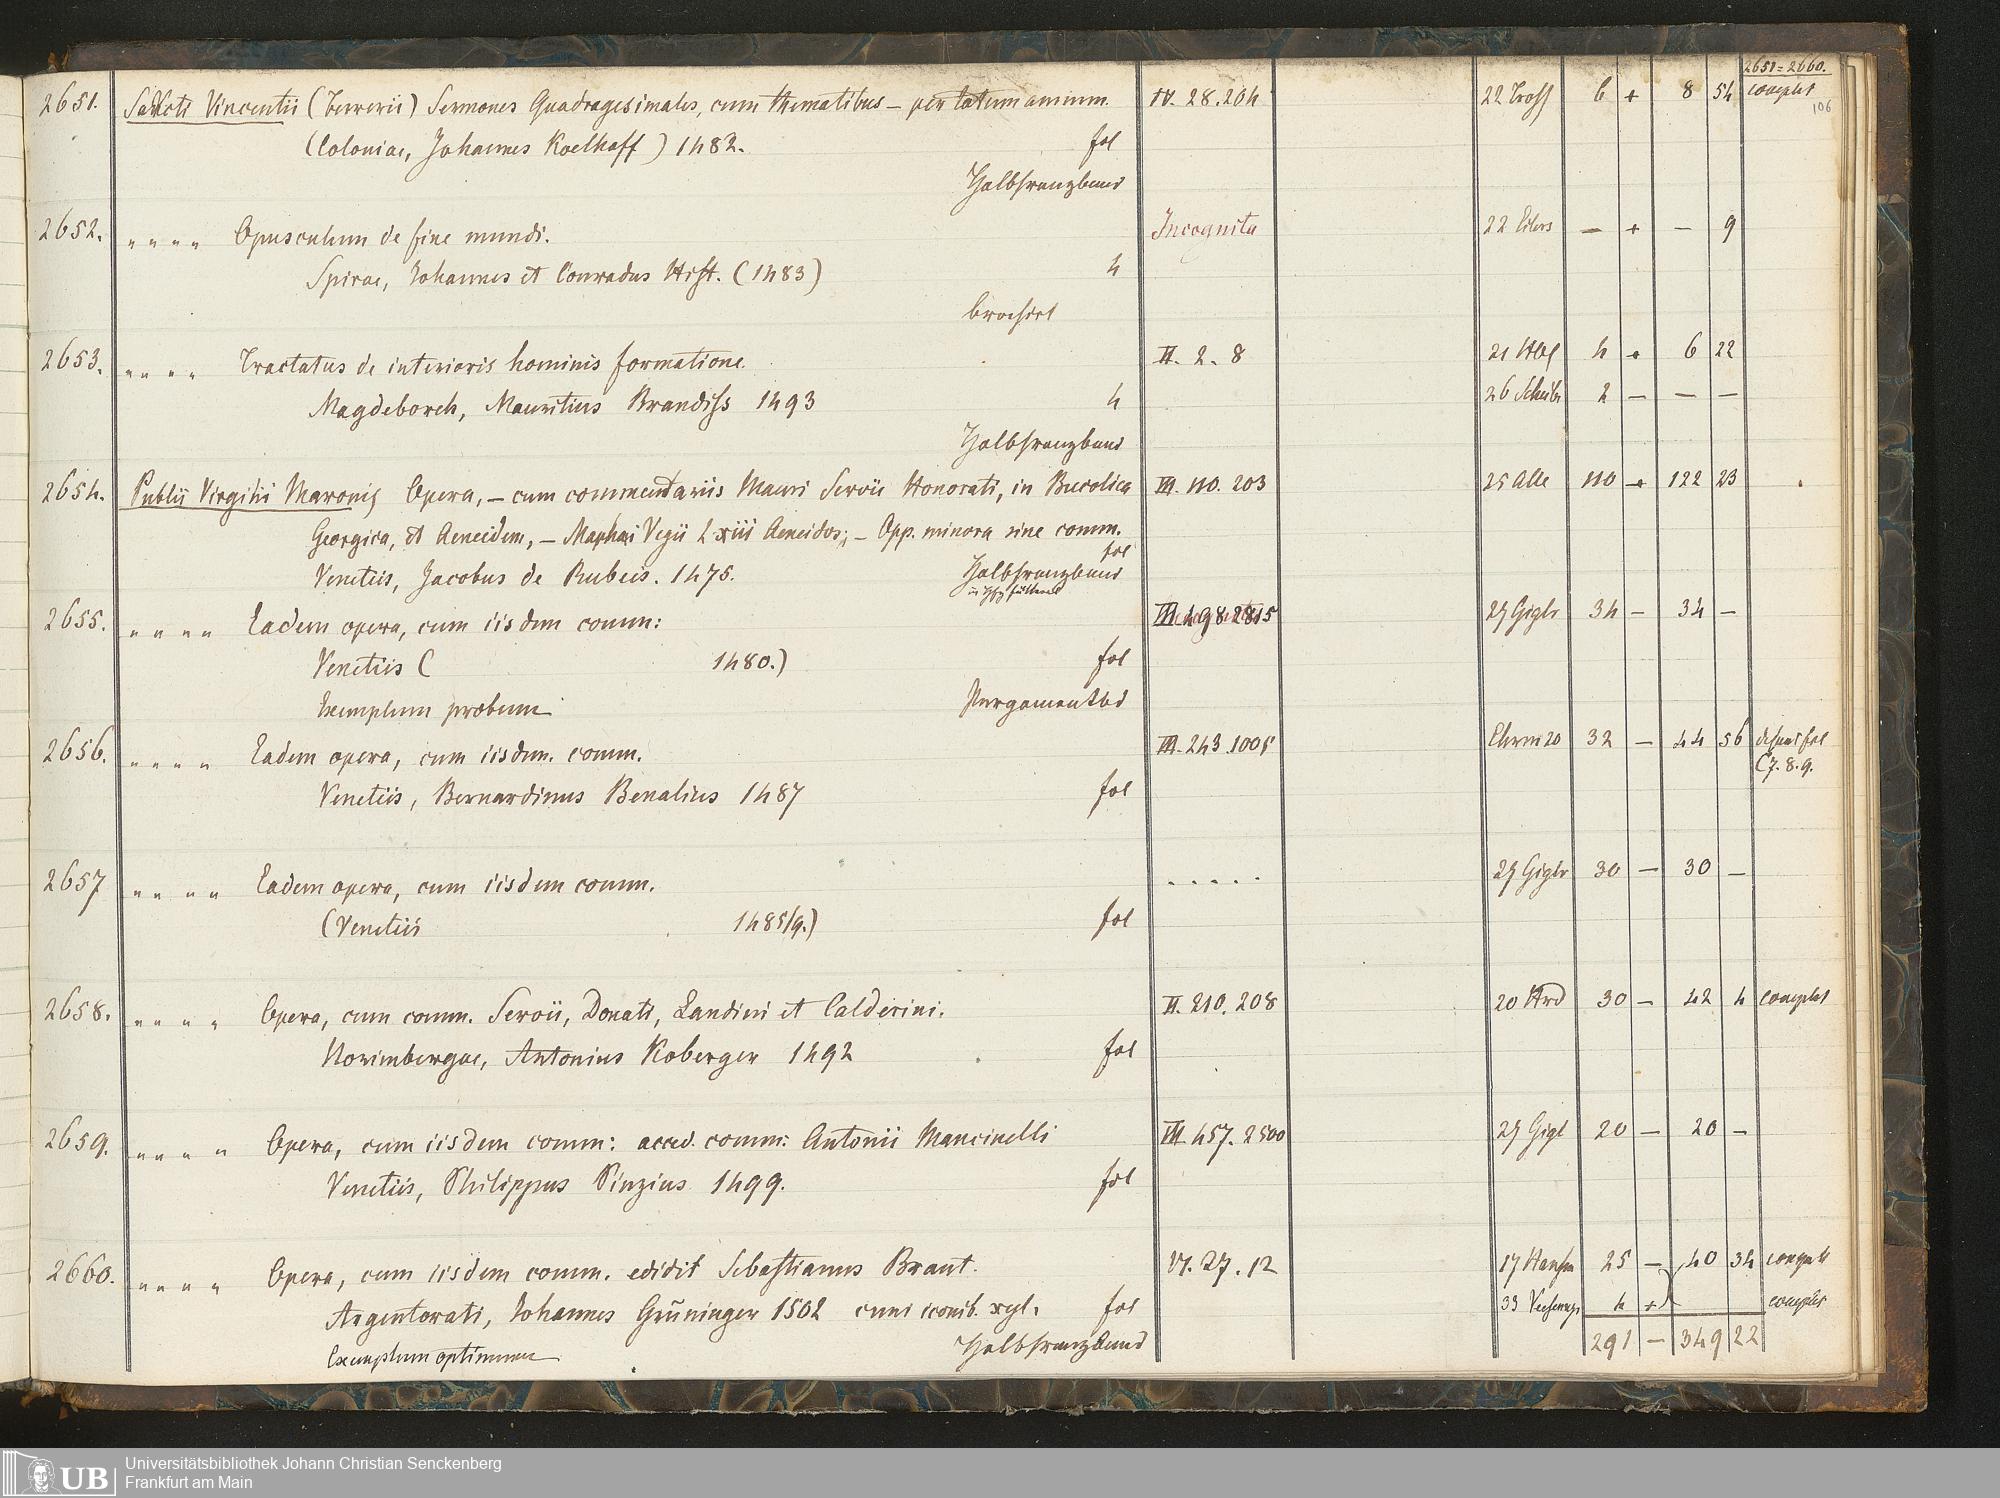 2651=2660.
2651. Sancti Vincentii (Ferrerii) Sermones Quadragesimales, cum thematibus – per totum annum. IV. 28. 204 22 Tross 6 + 8 54 complet
106
(Coloniae, Johannes Koelhoff) 1482. fol
Halbfranzband
2652. " " " " Opusculum de fine mundi. Incognita 22 Eilers — + — 9
Spirae, Johannes et Conradus Hist. (1483) 4
brochirt
2653. " " " " Tractatus de interioris hominis formatione. II. 2. 8 21 4 + 6 22
Magdeborch, Mauritius Brandiss 1493 4 26 Scheible 2 — — —
Halbfranzband
2654. Publii Virgilii Maronis Opera, – cum commentariis Mauri Servii Honorati, in Bucolica III. 110. 203 25 Alle 110 + 122 23
Georgica, et Aeneidem, – Maphaei Vegii L xiii Aeneidos; – Opp. minora sine comm.
fol
Venetiis, Jacobus de Rubeis. 1475. Halbfranzband
2655. " " " " Eadem opera, cum iisdem comm: III. 198. 2815 29 Giglr 34 — 34 —
Venetiis ( 1480.) fol
Exemplum probum Pergamentbd
2656. " " " " Eadem opera, cum iisdem. comm. III. 243. 1005 20 32 — 44 56 fol
(7. 8. 9.
Venetiis, Bernardinus Benalius 1487 fol
2657 " " " " Eadem opera, cum iisdem comm. . . . . . 29 Giglr 30 — 30 —
(Venetiis 1485/9.) fol
2658. " " " " Opera, cum comm. Servii, Donati, Landini et Calderini. II. 210. 208 20 Hrd 30 — 42 4 complet
Norimbergae, Antonius Koberger 1492 fol
2659. " " " " Opera, cum iisdem comm: acced. comm: Antonii Mancinelli III. 457. 2500 29 Gigl 20 — 20 —
Venetiis, Philippus Pinzius 1499. fol
2660. " " " " Opera, cum iisdem comm. edidit Sebastianus Brant. VI. 27. 12 17 25 — 40 34 complt
Argentorati, Johannes Grüninger 1502 cum iconib. xyl. fol 33 4 + complet
Exemplum optimum Halbfranzband 291 — 349 22
UB
Universitätsbibliothek Johann Christian Senckenberg
Frankfurt am Main